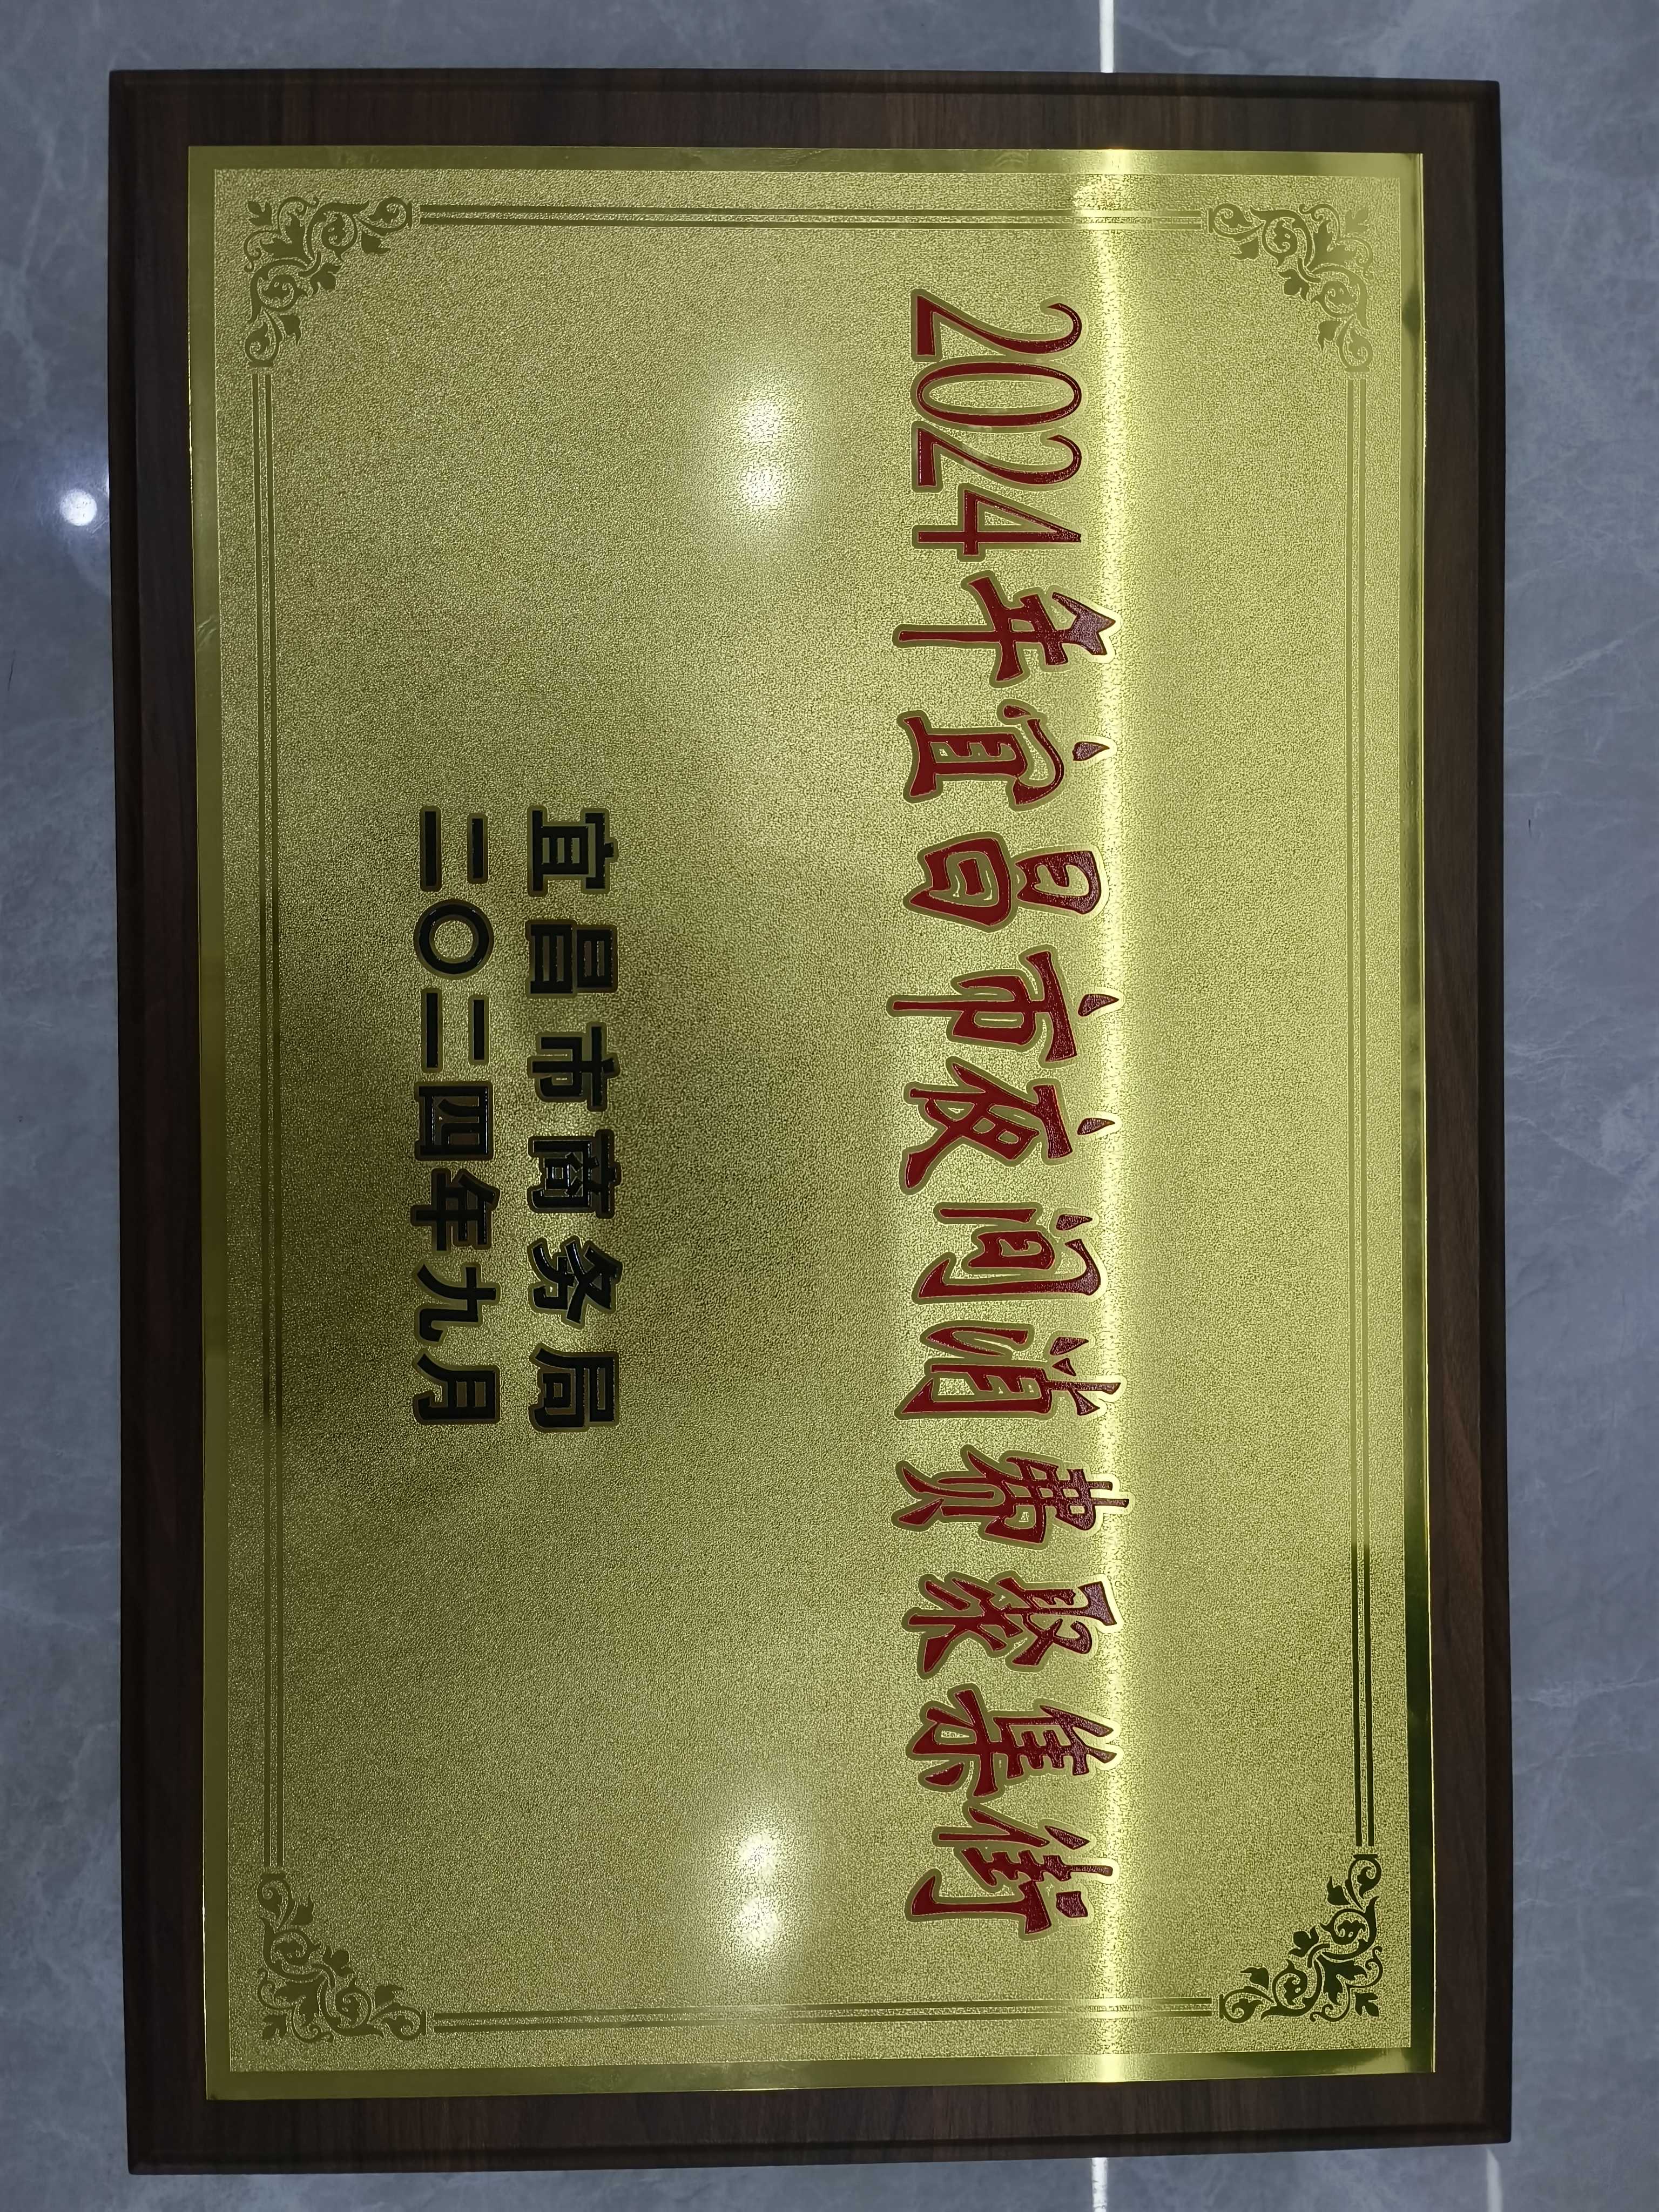 2024年宜昌市夜间消费聚集街
宜昌市商务局
二〇二四年九月